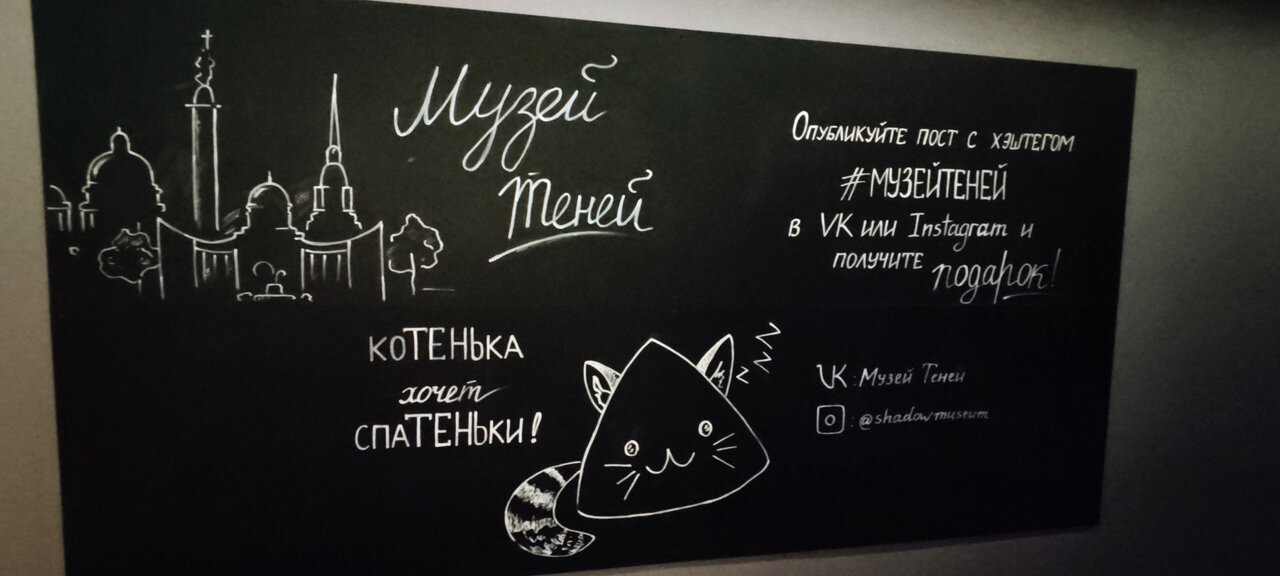 Музей
Теней
Опубликуйте пост с хэштегом
#МУЗЕЙТЕНЕЙ
в VK или Instagram и
получите подарок!
КОТЕНЬКА
хочет
СПАТЕНЬКИ!
z z z z
VK: Музей Теней
: @shadowmuseum